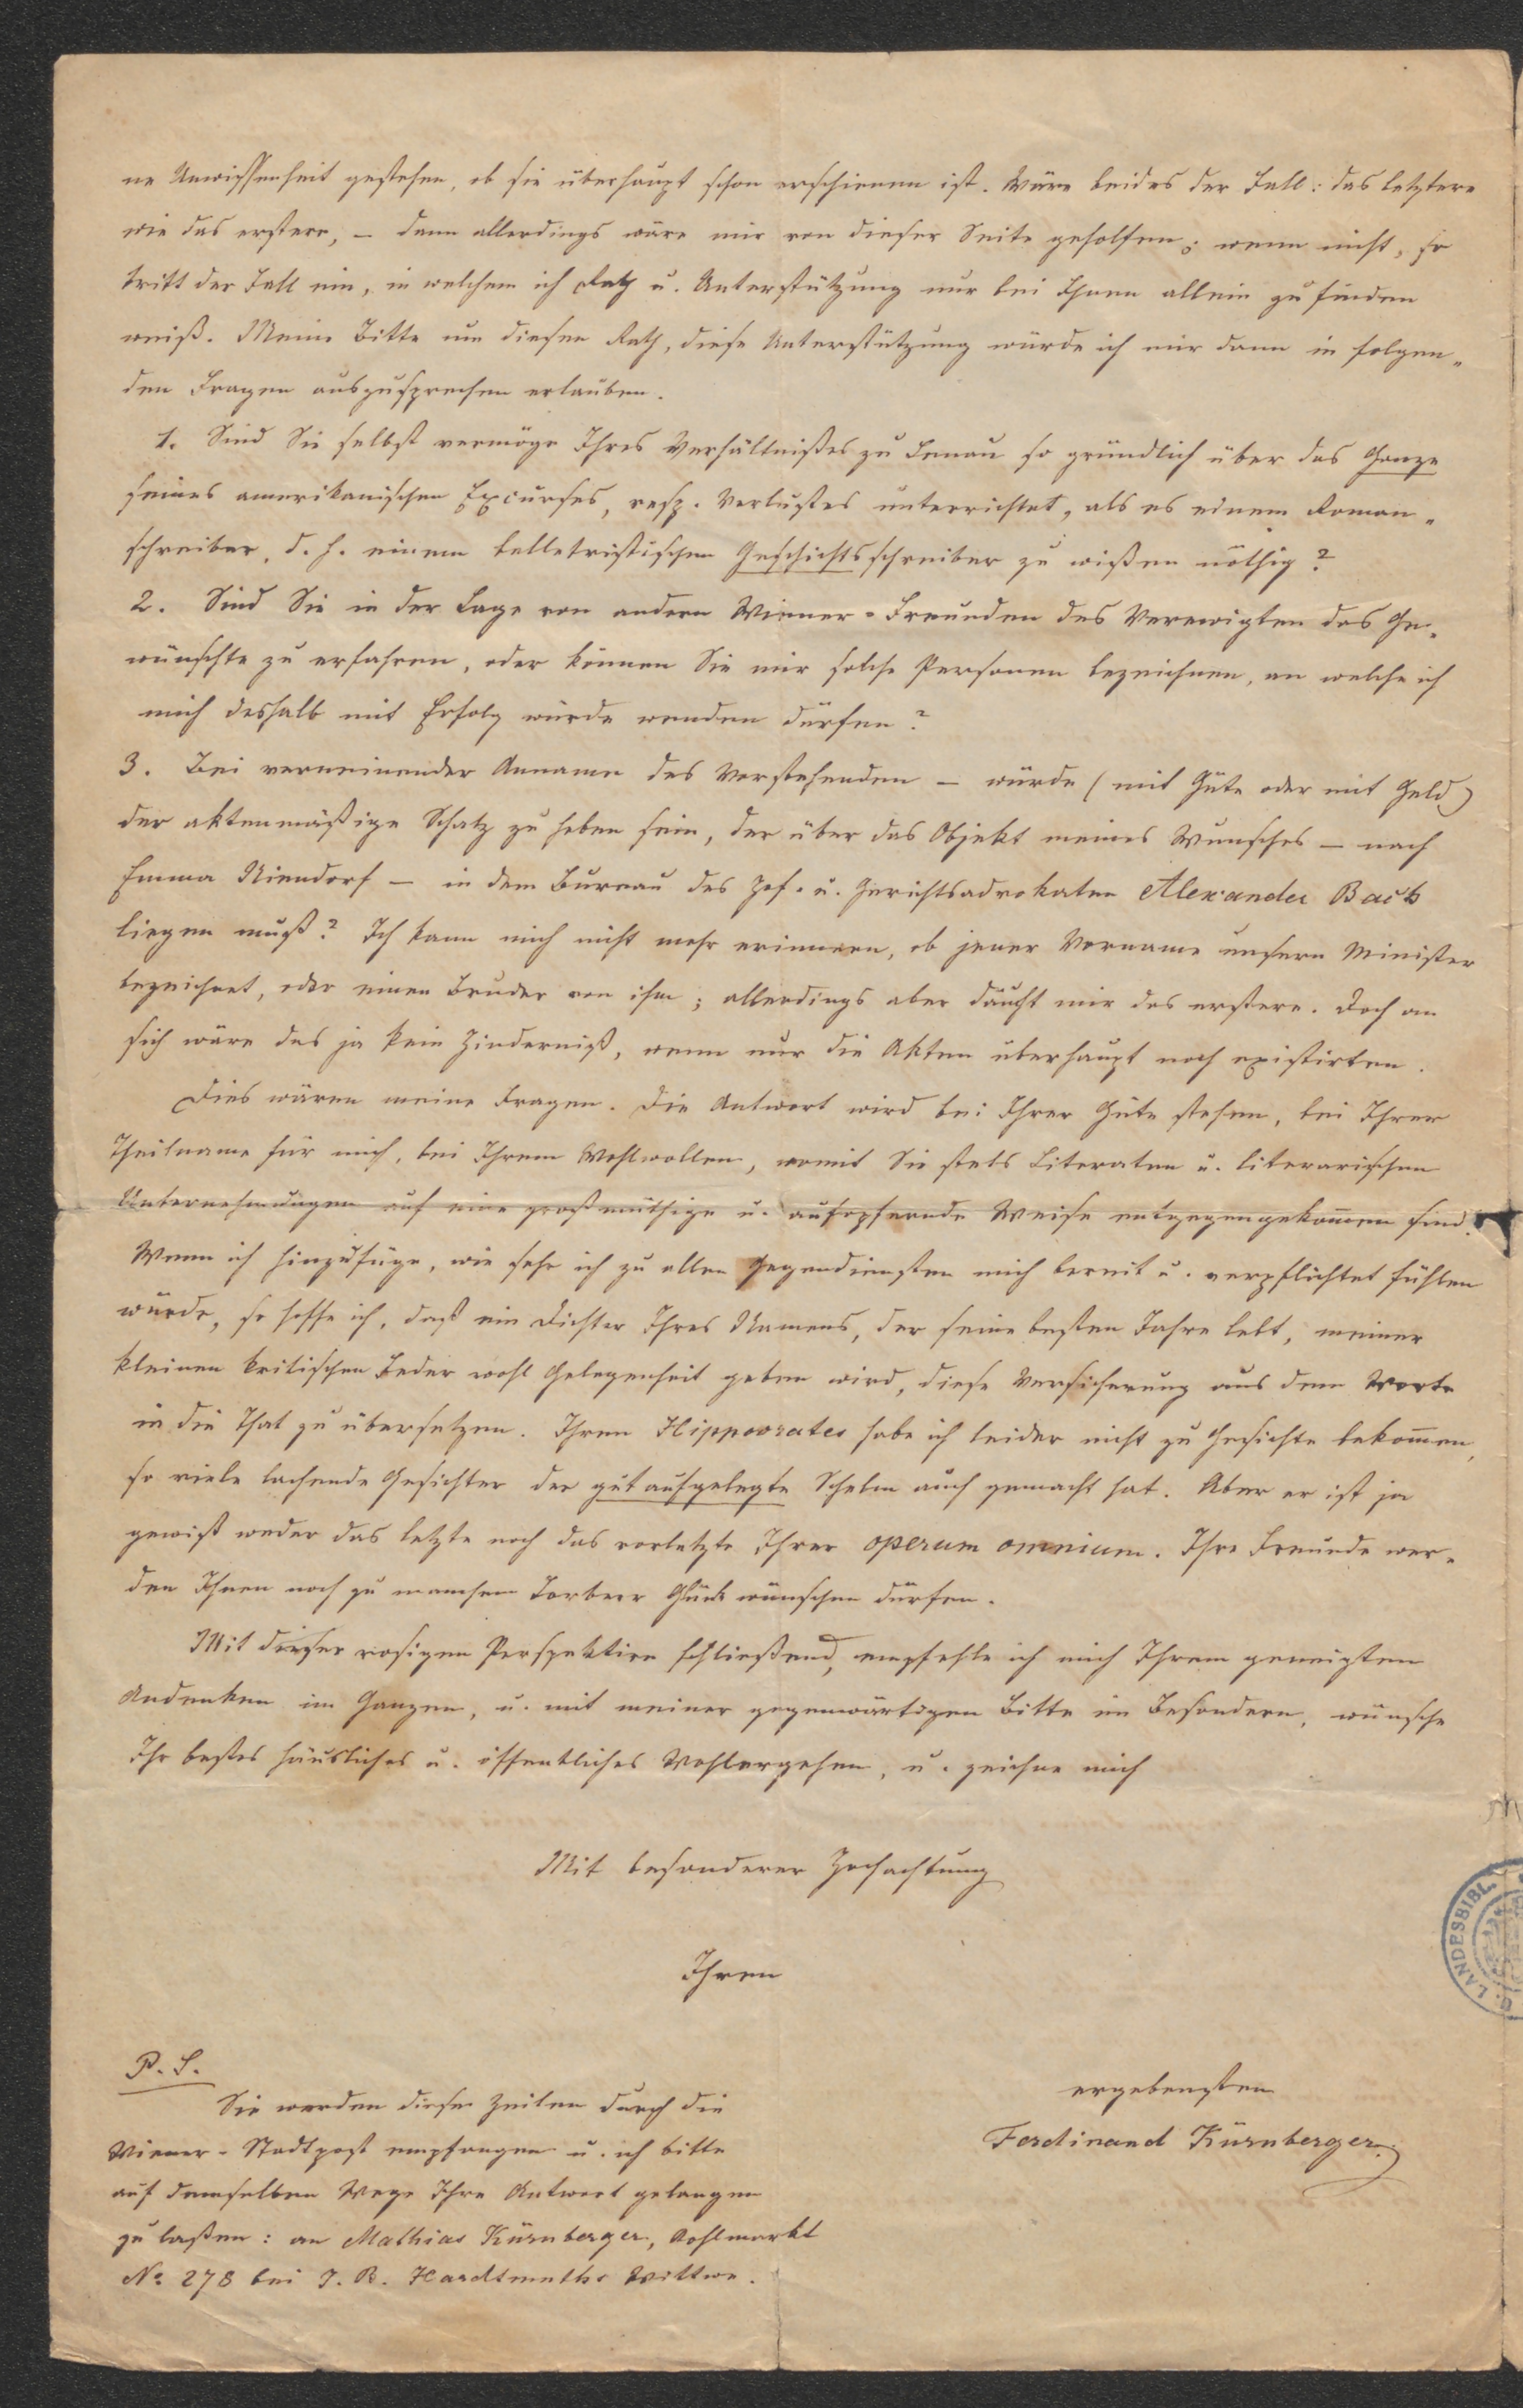 ne Unwissenheit gestehen, ob sie überhaupt schon erschienen ist. Wäre beides der Fall: das letztere
wie das erstere, – dann allerdings wäre mir von dieser Seite geholfen; wenn nicht, so
tritt der Fall ein, in welchem ich Rath u. Unterstützung nur bei Ihnen allein zu finden
weiß. Meine Bitte um diesen Rath, diese Unterstützung würde ich mir dann in folgen-
den Fragen auszusprechen erlauben.
1. Sind Sie selbst vermöge Ihres Verhältnißes zu Lenau so gründlich über das Ganze
seines amerikanischen Excurses, resp. Verlustes unterrichtet, als es einem Roman-
schreiber, d. h. einem belletristischen Geschichtsschreiber zu wißen nöthig?
2. Sind Sie in der Lage von andern Wiener-Freunden des Verewigten das Ge-
wünschte zu erfahren, oder können Sie mir solche Personen bezeichnen, an welche ich
mich deshalb mit Erfolg würde wenden dürfen?
3. Bei verneinender Anname des Vorstehenden – würde (mit Güte oder mit Geld)
der aktenmäßige Schatz zu heben sein, der über das Objekt meines Wunsches – nach
Emma Niendorf – in dem Bureau des Hof- u. Gerichtsadvokaten Alexander Bach
liegen muß? Ich kann mich nicht mehr erinnern, ob jener Vorname unsern Minister
bezeichnet, oder einen Bruder von ihm; allerdings aber däucht mir das erstere. Doch an
sich wäre das ja kein Hinderniß, wenn nur die Akten überhaupt noch existirten.
Dies wären meine Fragen. Die Antwort wird bei Ihrer Güte stehen, bei Ihrer
Theilname für mich, bei Ihrem Wohlwollen, womit Sie stets Literaten u. literarischen
Unternehmungen auf eine großmüthige u. aufopfernde Weise entgegengekom̄en sind.
Wenn ich hinzufüge, wie sehr ich zu allen Gegendiensten mich bereit u. verpflichtet fühlen
würde, so hoffe ich, daß ein Dichter Ihres Namens, der seine besten Jahre lebt, meiner
kleinen kritischen Feder wohl Gelegenheit geben wird, diese Versicherung aus dem Worte
in die That zu übersetzen. Ihren Hippocrates habe ich leider nicht zu Gesichte bekom̄en,
so viele lachende Gesichter der gut aufgelegte Schelm auch gemacht hat. Aber er ist ja
gewiß weder das letzte noch das vorletzte Ihrer operum omnium. Ihre Freunde wer-
den Ihnen noch zu manchem Lorbeer Glück wünschen dürfen.
Mit dieser rosigen Perspektive schließend, empfehle ich mich Ihrem geneigten
Andenken im Ganzen, u. mit meiner gegenwärtigen Bitte im Besondern, wünsche
Ihr bestes häusliches u. öffentliches Wohlergehen, u. zeichne mich
Mit besonderer Hochachtung
Ihren
ergebensten
Ferdinand Kürnberger.
P. S.
Sie werden diese Zeilen durch die
Wiener-Stadtpost empfangen u. ich bitte
auf demselben Wege Ihre Antwort gelangen
zu laßen: an Mathias Kürnberger, Kohlmarkt
No 278 bei J. B. Hardtmuths Wittwe.
LANDESBIBL.